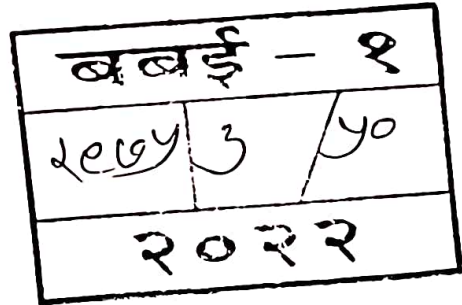 बबई - १
२९७५ ३ / ५०
२०२२